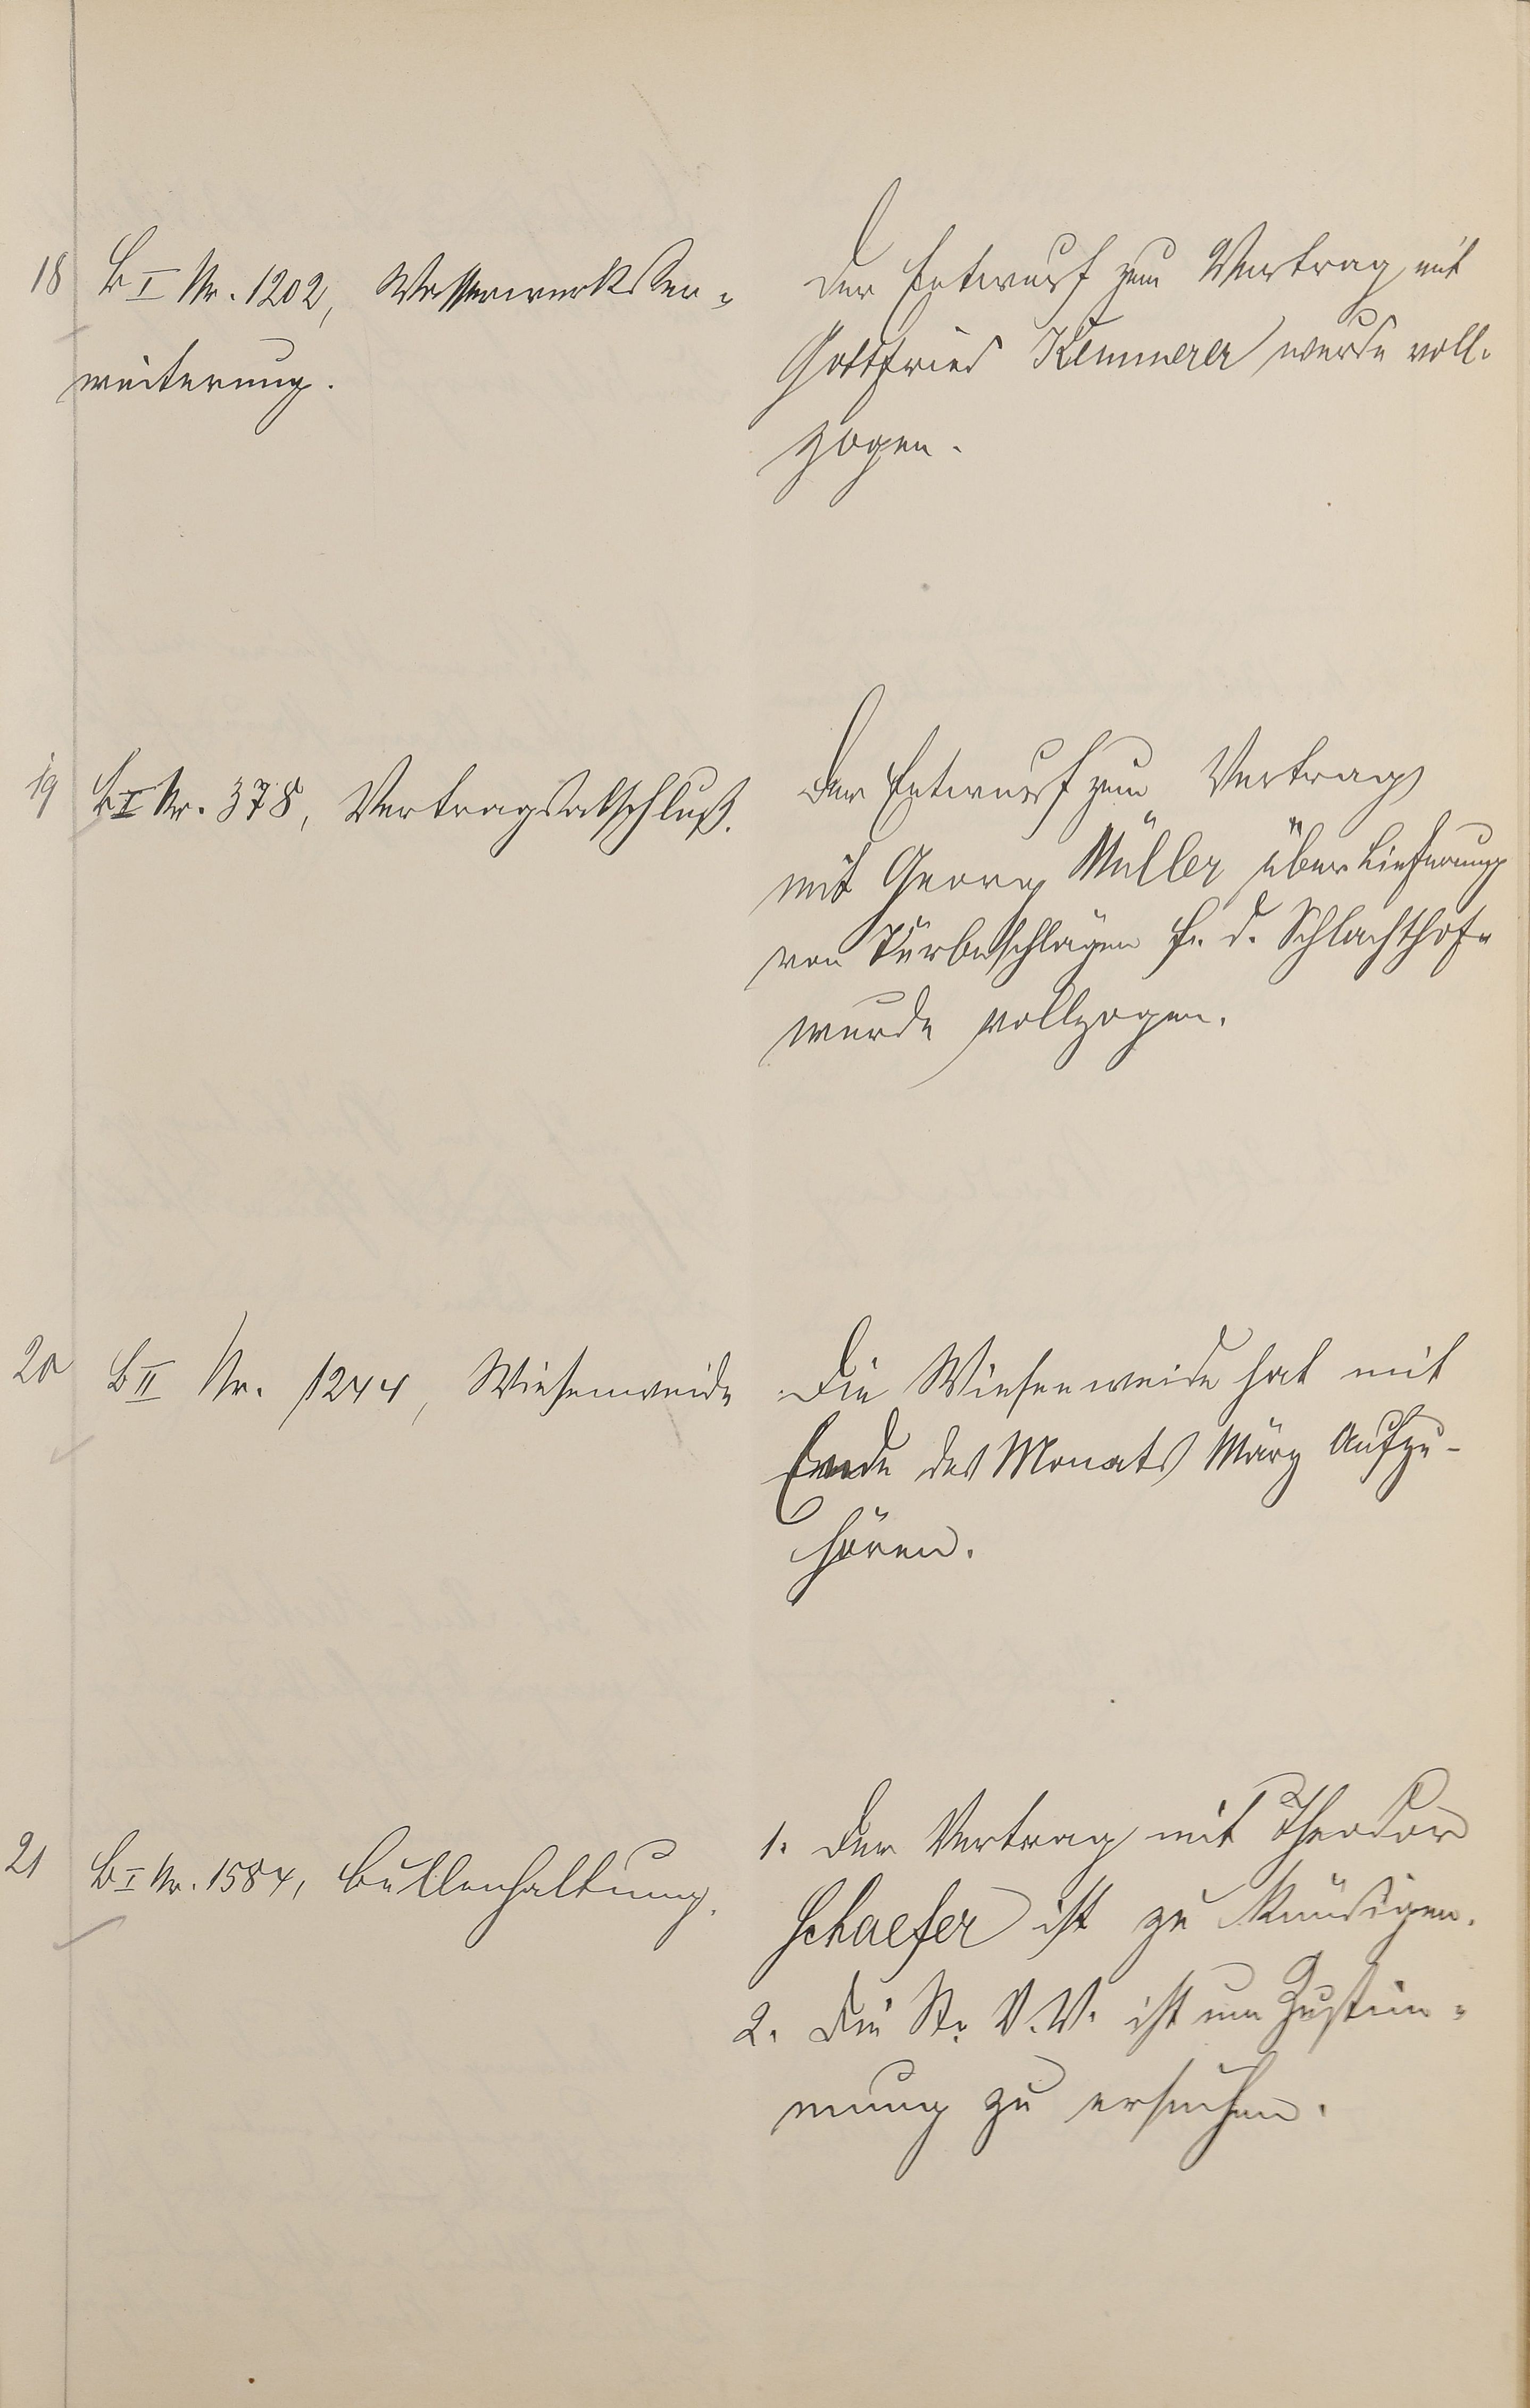 18 B I Nr. 1202, Wasserwerkser-
weiterung.
Der Entwurf zum Vertrag mit
Gottfried Kemmerer wurde voll-
zogen.
19 B I Nr. 378, Vertragsabschluß.
Der Entwurf zum Vertrag
mit Georg Müller über Lieferung
von Türbeschlägen f. d. Schlachthof
wurde vollzogen.
20 B II Nr. 1244, Wiesenweide
Die Wiesenweide hat mit
Ende des Monats März aufzu-
hören.
21 B I Nr. 1584, Bullenhaltung.
1. Der Vertrag mit Theodor
Schaefer ist zu kündigen.
2. Die St. V. V. ist um Zustim-
mung zu ersuchen.